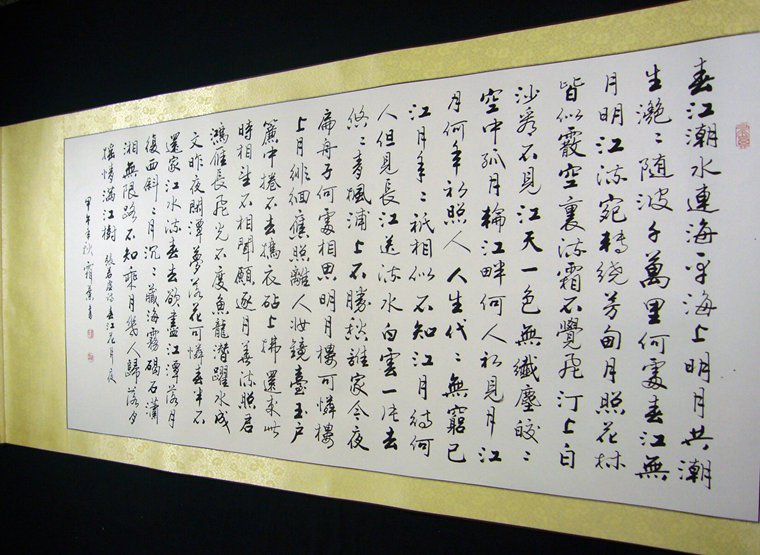 春江潮水連海平海上明月共潮
生灧〻隨波千萬里何處春江無
月明江流宛轉繞芳甸月照花林
皆似霰空裏流霜不覺飛汀上白
沙看不見江天一色無纖塵皎〻
空中孤月輪江畔何人初見月江
月何年初照人人生代〻無窮已
江月年〻祇相似不知江月待何
人但見長江送流水白雲一片去
悠〻青楓浦上不勝愁誰家今夜
扁舟子何處相思明月樓可憐樓
上月徘徊應照離人妝鏡臺玉戶
簾中捲不去擣衣砧上拂還來此
時相望不相聞願逐月華流照君
鴻雁長飛光不度魚龍潛躍水成
文昨夜閑潭夢落花可憐春半不
還家江水流春去欲盡江潭落月
復西斜〻月沉〻藏海霧碣石瀟
湘無限路不知乘月幾人歸落月
搖情滿江樹 張若虛詩春江花月夜
甲午年秋 霜葉書